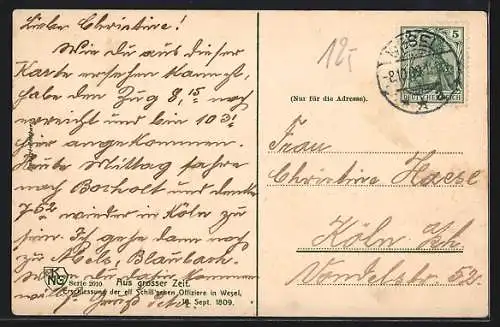 Liebe Christine!
Wie du aus dieser
Karte ersehen kannst,
habe den Zug 8,15 noch
erreicht und bin 10 31
hier angekommen.
Heute Mittag fahre
nach Bocholt und denke
7 52 wieder in Köln zu
sein. Ich gehe dann noch
zu Mels, Blaubach.
Wenn du dahin kommen
willst
NG
Serie 2010 Aus grosser Zeit.
Erschiessung der elf Schill'schen Offiziere in Wesel,
16. Sept. 1809.
12,-
WESEL
5
DEUTSCHES REICH
(Nur für die Adresse).
Frau
Christine Haese
Köln Rh.
Vondelstr. 52.